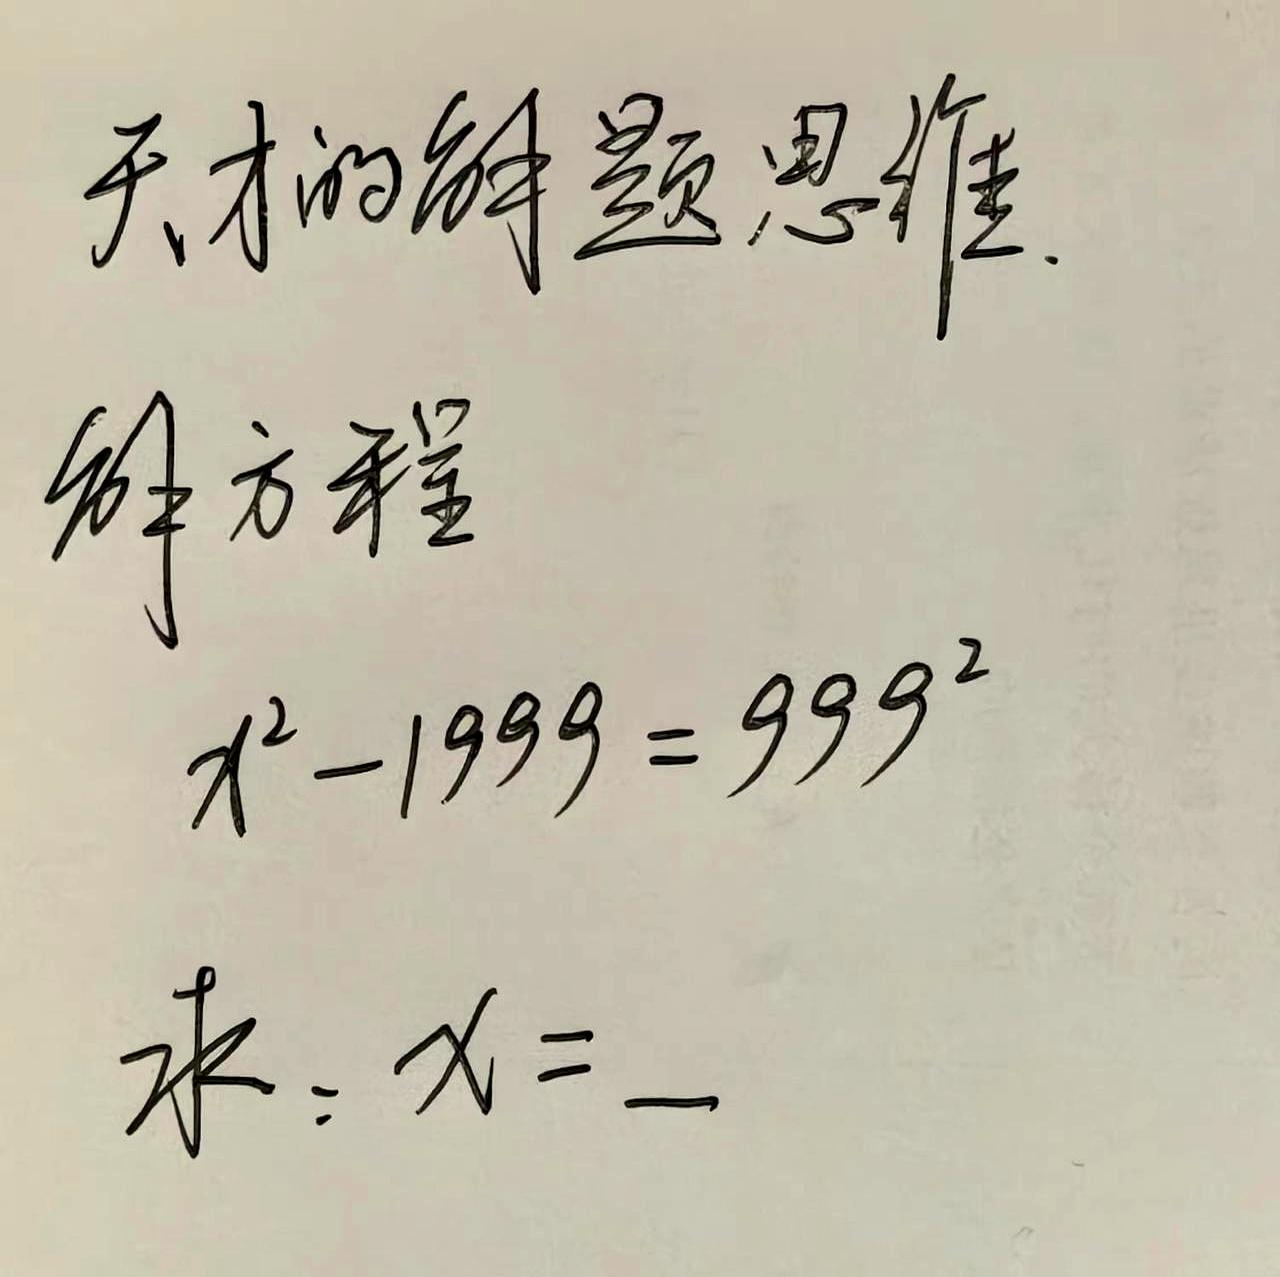 天才的解题思维.
解方程
x²-1999=999²
求:x=_